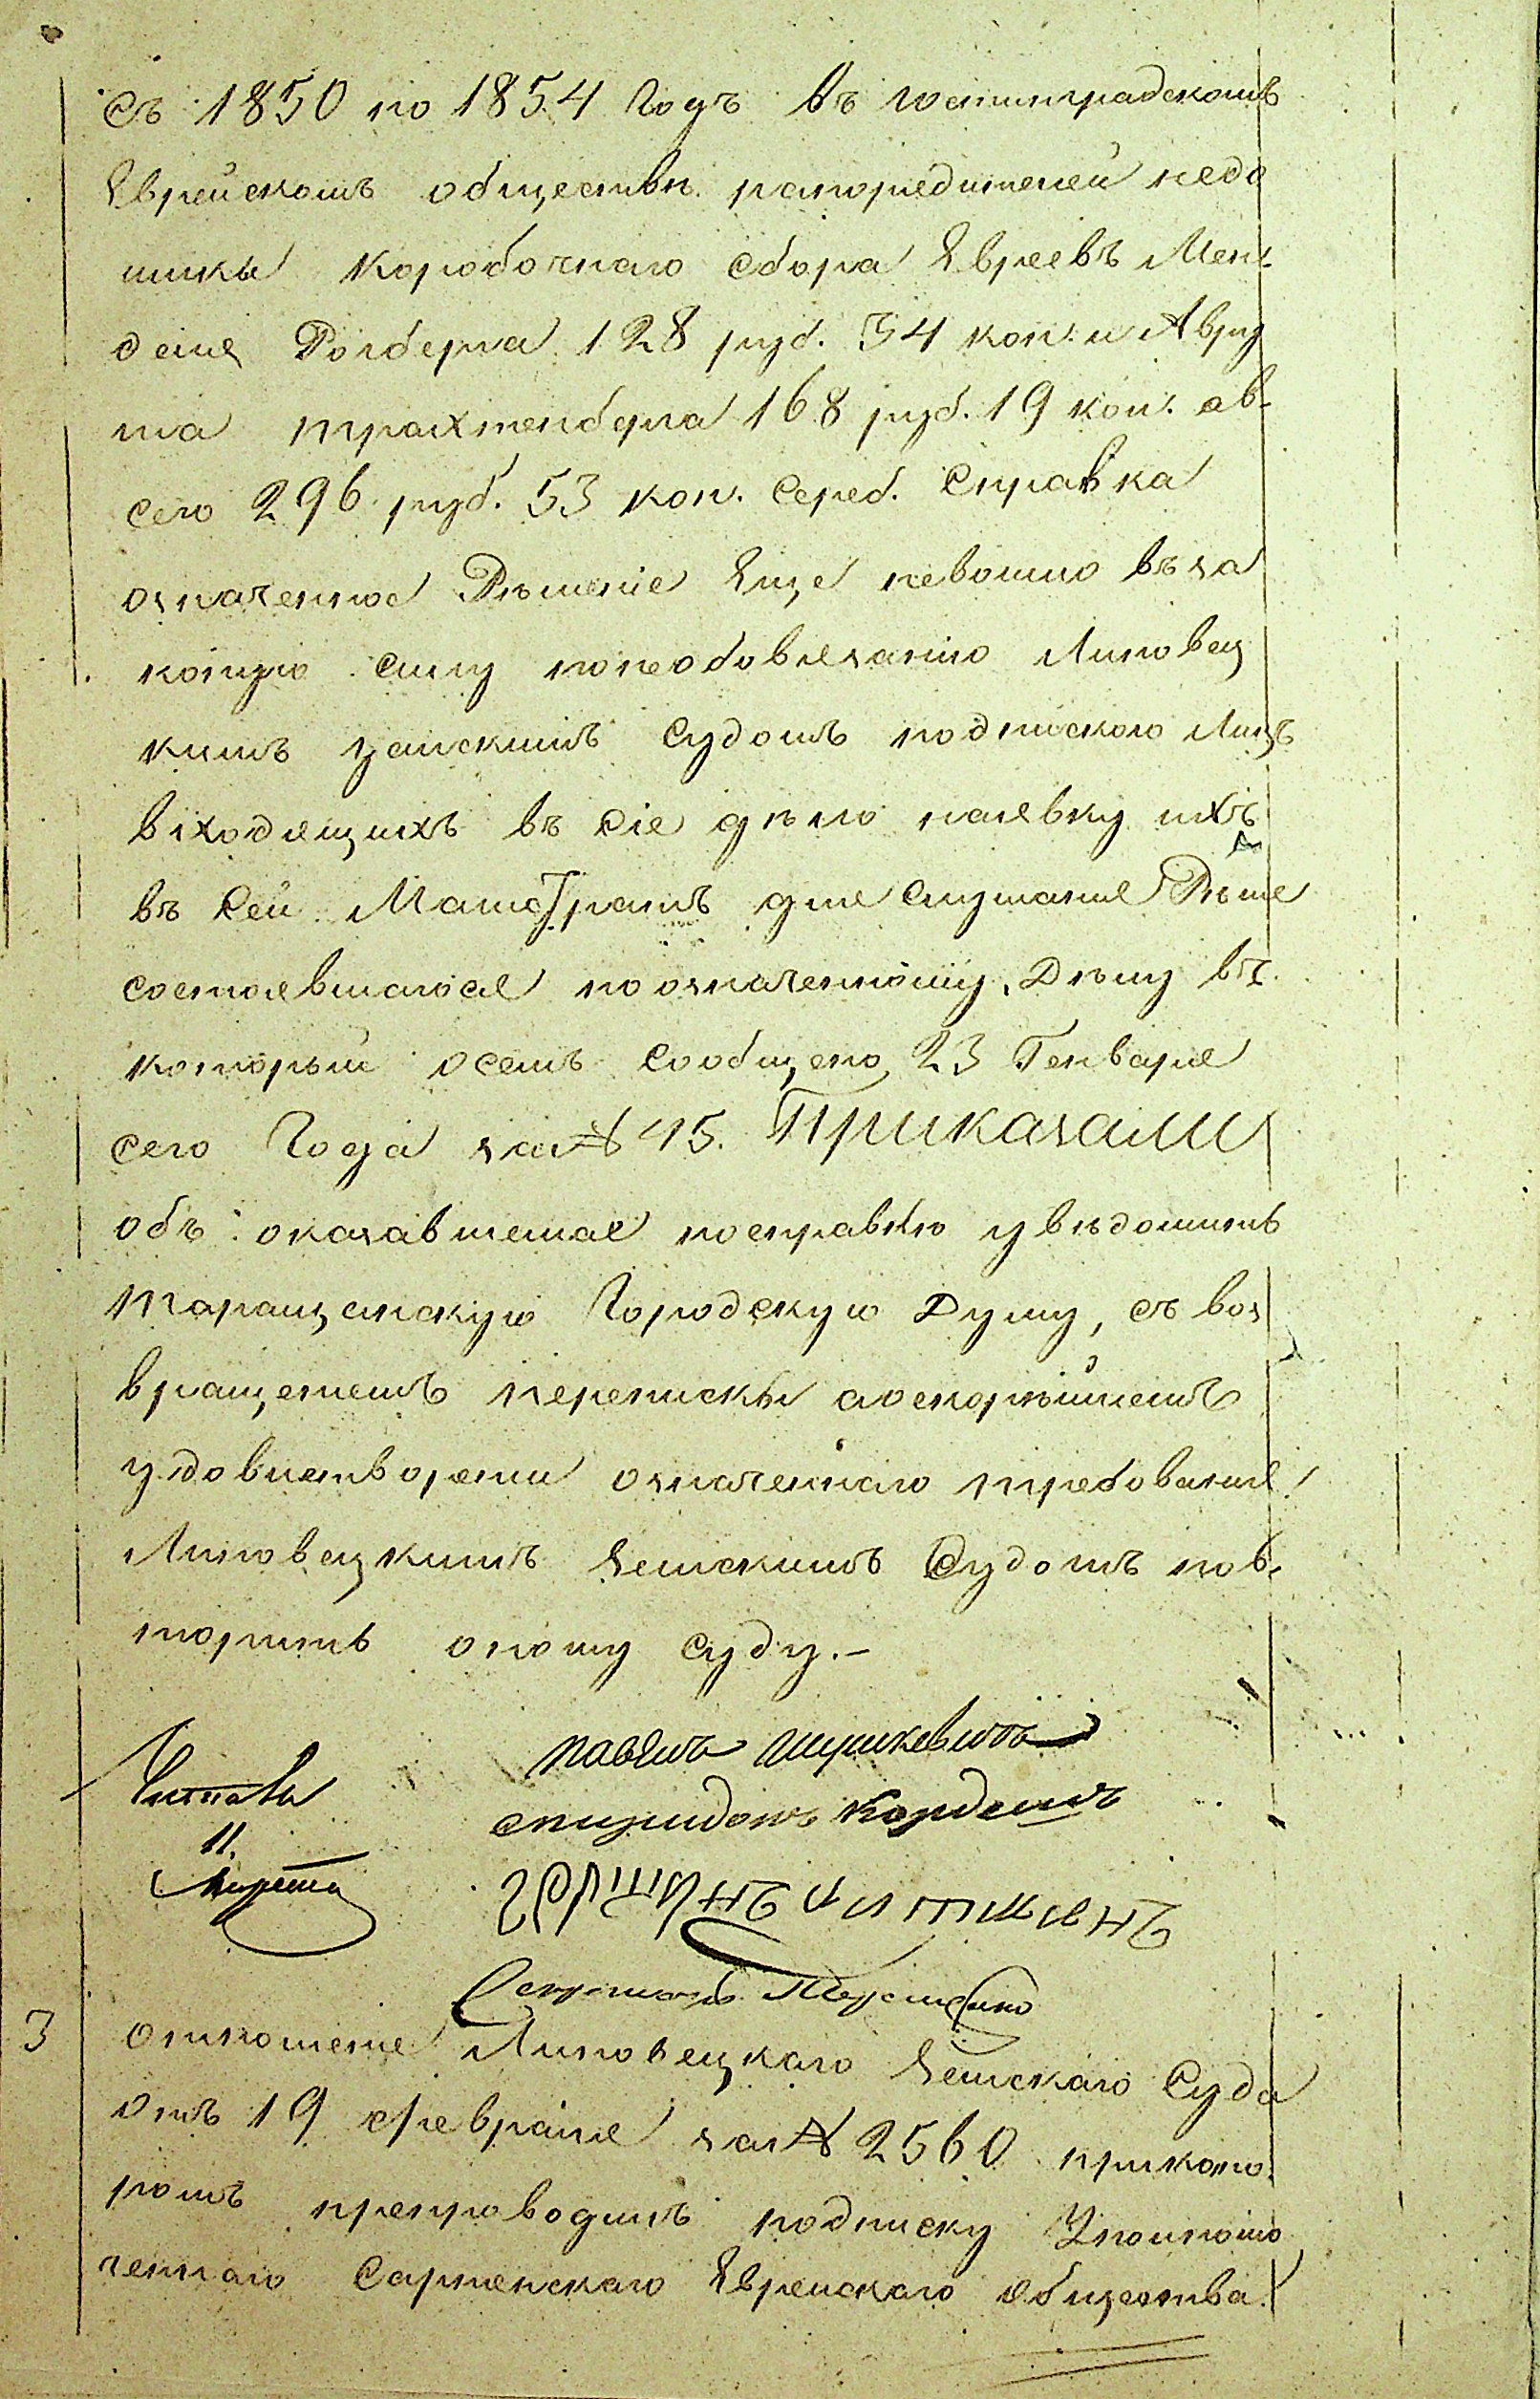 съ 1850 по 1854 годъ въ юстинградскомъ
Еврейскомъ обществѣ рапорядителей недо
имки Коробочнаго сбора Евреевъ Мен-
деля Ролберга 128 руб. 34 коп. и Авру
ма Трахтенберга 168 руб. 19 коп. ав-
сего 296 руб. 53 коп. сереб. Справка
означенное Рѣшеніе Еще невошло въ за
конную силу понеобовязанію Липовец
кимъ земскимъ судомъ подпискою Лицъ
входящихъ въ сіе дѣло наявку ихъ
въ сей Магистратъ для слушанія Рѣше
состоявшагося по означенному Дѣлу въ
который осемъ сообщено 23 Генваря
сего Года за № 45. Приказали
объ оказавшемся посправкю увѣдомить
Таращанскую Городскую Думу, съ воз
вращеніемъ переписки а оскорѣйшемъ
удовлетвореніи означеннаго требованія
Липовецкимъ Земскимъ Судомъ пов-
торить оному суду.-
Павелъ Шушкевичъ
спиридонъ Корденъ
3 Отношеніе Липовецкаго Земскаго Суда
Отъ 19 февраля за № 2560 прикото
ромъ препроводилъ подписку Уполномо
ченнаго Сарненскаго Еврейскаго общества